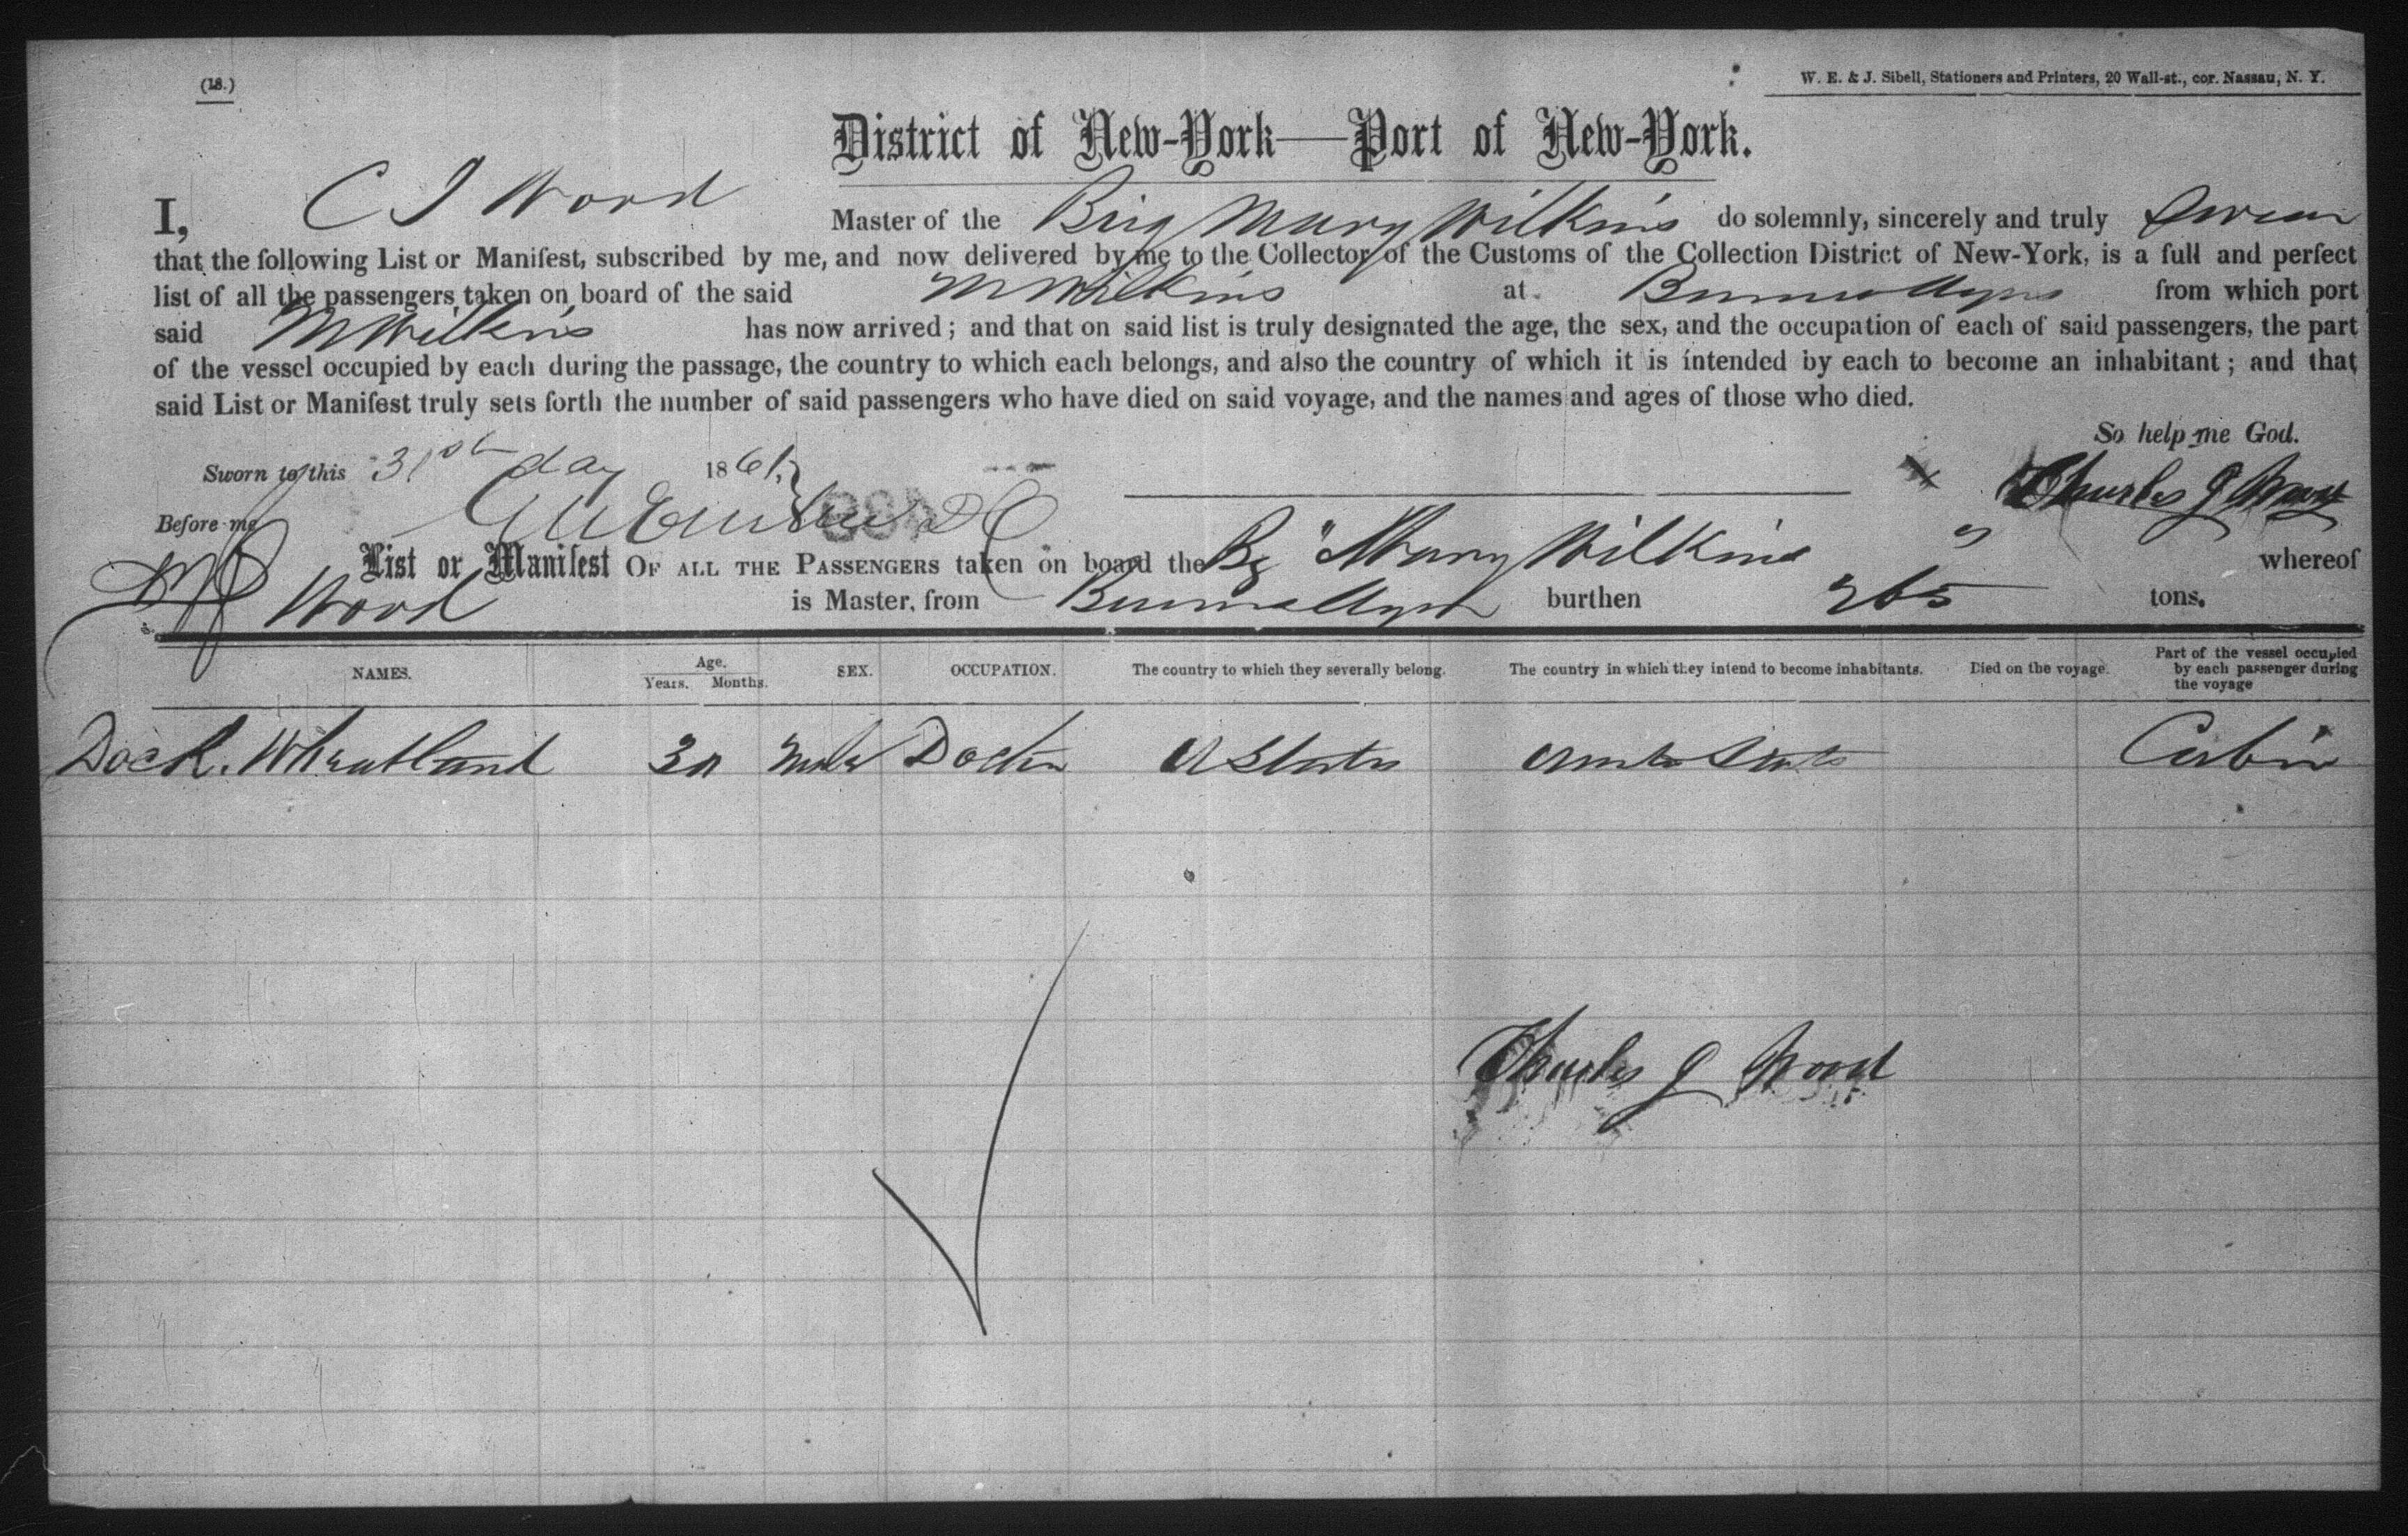 (18.)
W. E. & J. Sibell, Stationers and Printers, 20 Wall-st., cor. Nassau, N. Y.
District of New-York—Port of New-York.
I, C J Wood Master of the Brig Mary Wilkins do solemnly, sincerely and truly Swear
that the following List or Manifest, subscribed by me, and now delivered by me to the Collector of the Customs of the Collection District of New-York, is a full and perfect
list of all the passengers taken on board of the said M Wilkins at Buenos Ayres from which port
said M Wilkins has now arrived; and that on said list is truly designated the age, the sex, and the occupation of each of said passengers, the part
of the vessel occupied by each during the passage, the country to which each belongs, and also the country of which it is intended by each to become an inhabitant; and that
said List or Manifest truly sets forth the number of said passengers who have died on said voyage, and the names and ages of those who died.
So help me God.
Sworn to this 31st day 1861
Charles J Wood
Before me
List or Manifest OF ALL THE PASSENGERS taken on board the Bg "Mary Wilkins" whereof
Wood is Master, from Buenos Ayres burthen 265 tons.
NAMES. Age. Years. Months. SEX. OCCUPATION. The country to which they severally belong. The country in which they intend to become inhabitants. Died on the voyage. Part of the vessel occupied by each passenger during the voyage
Doc R. Wheatland 30 Male Doctor U States United States Cabin
Charles J Wood